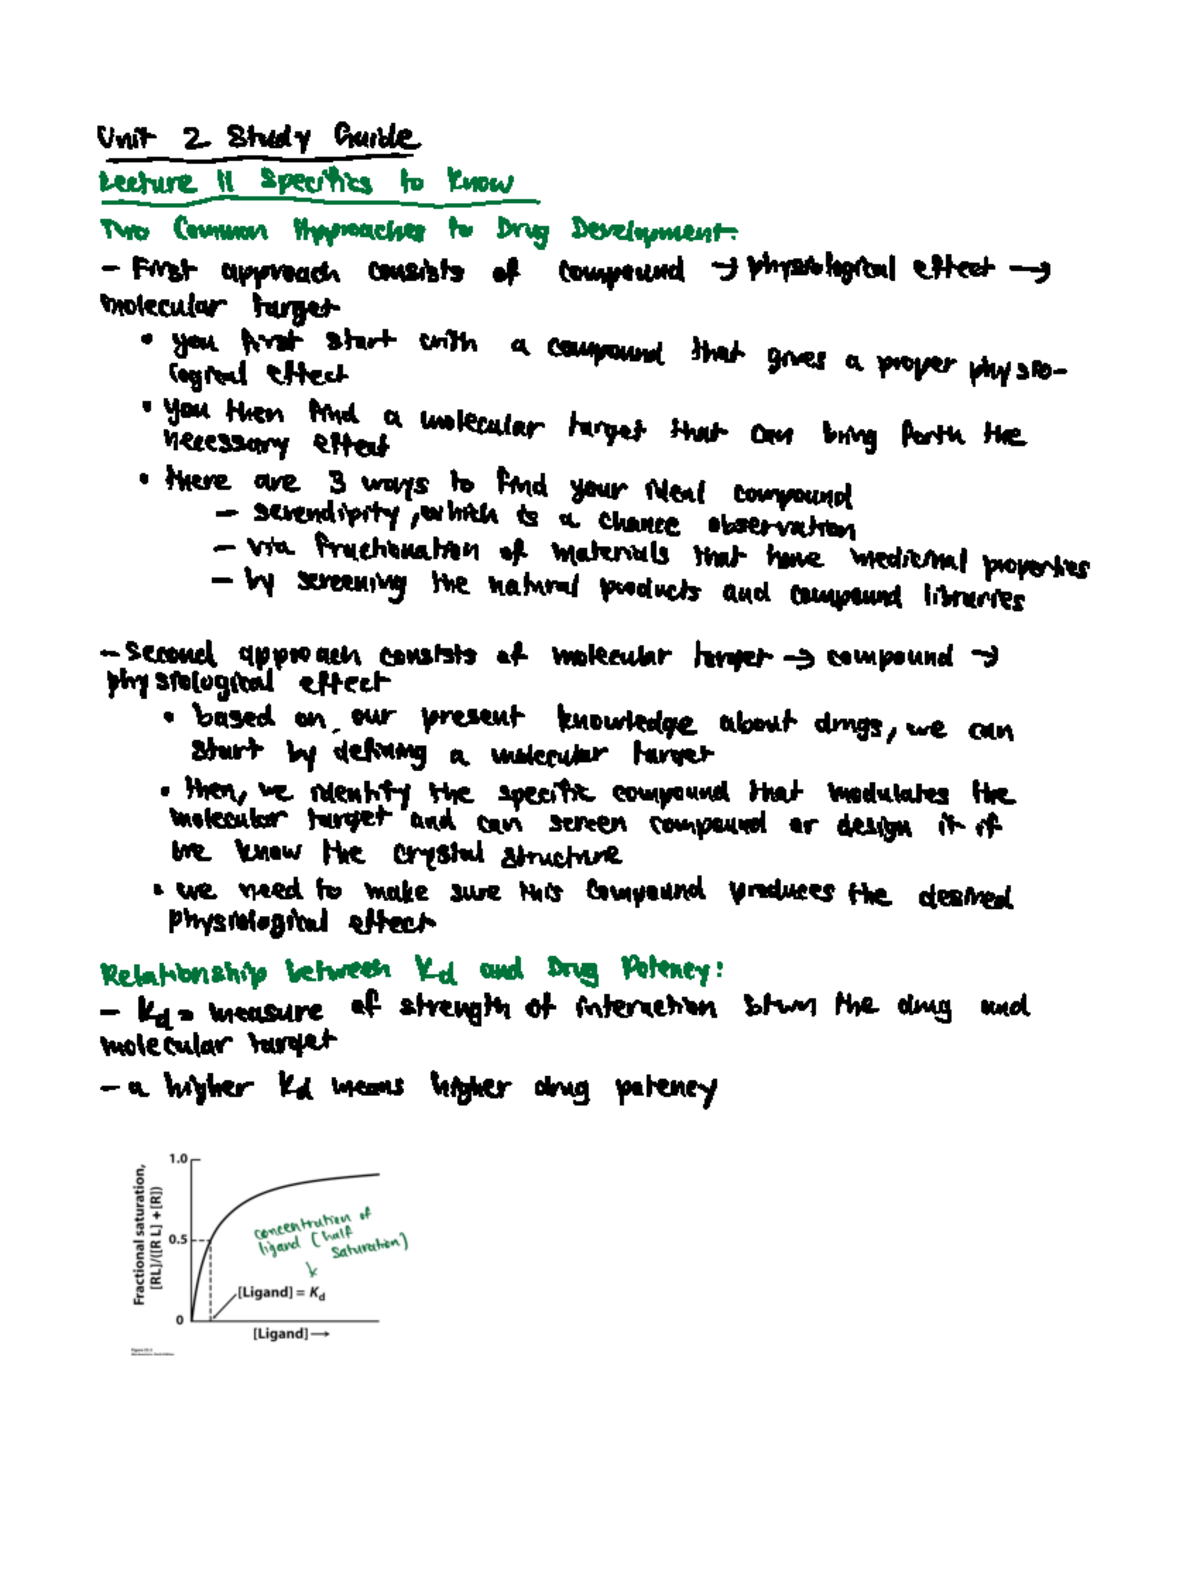 Unit 2 Study Guide
Lecture 11 Specifics to Know
Two Common Approaches to Drug Development:
- First approach consists of compound → physiological effect →
molecular target
• you first start with a compound that gives a proper physio-
logical effect
• you then find a molecular target that can bring forth the
necessary effect
• there are 3 ways to find your ideal compound
- serendipity, which is a chance observation
- via fractionation of materials that have medicinal properties
- by screening the natural products and compound libraries
- Second approach consists of molecular target → compound →
physiological effect
• based on our present knowledge about drugs, we can
start by defining a molecular target
• then, we identify the specific compound that modulates the
molecular target and can screen compound or design it if
we know the crystal structure
• we need to make sure this compound produces the desired
physiological effect
Relationship between Kd and Drug Potency:
- Kd = measure of strength of interaction btwn the drug and
molecular target
- a higher Kd means higher drug potency
Fractional saturation,
[RL]/([R L] + [R])
1.0
0.5
0
concentration of
ligand (half
saturation)
[Ligand] = Kd
[Ligand] →